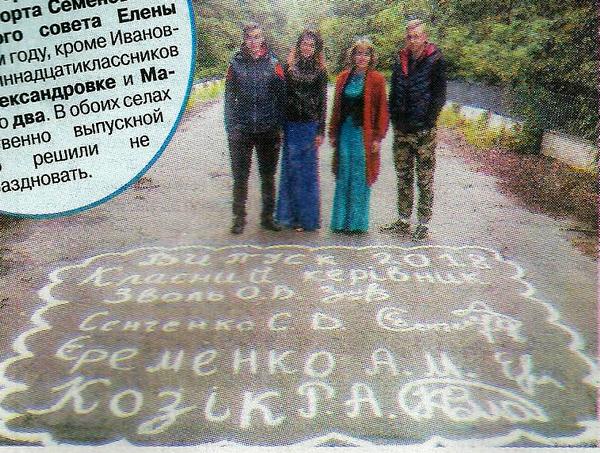 орта Семенов
ого совета Елены
м году, кроме Иванов-
иннадцатиклассников
ександровке и Ма-
о два. В обоих селах
твенно выпускной
решили не
аздновать.
Випуск 2018
Класний керівник
Зволь О.В.
Сенченко С. D.
Єременко А. М.
Козік Г. А.